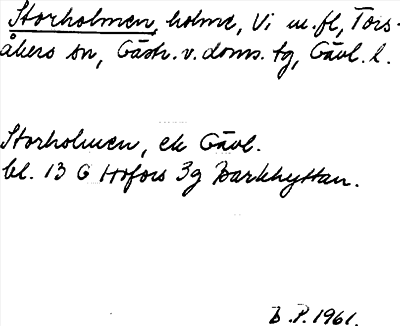 Storholmen, holme, Vi m.fl, Tors-
åkers sn, Gästr. v. doms. tg, Gävl. l.
Storholmen, ek Gävl.
bl. 13 G Hofors 3g Barkhyttan.
B.P. 1961.